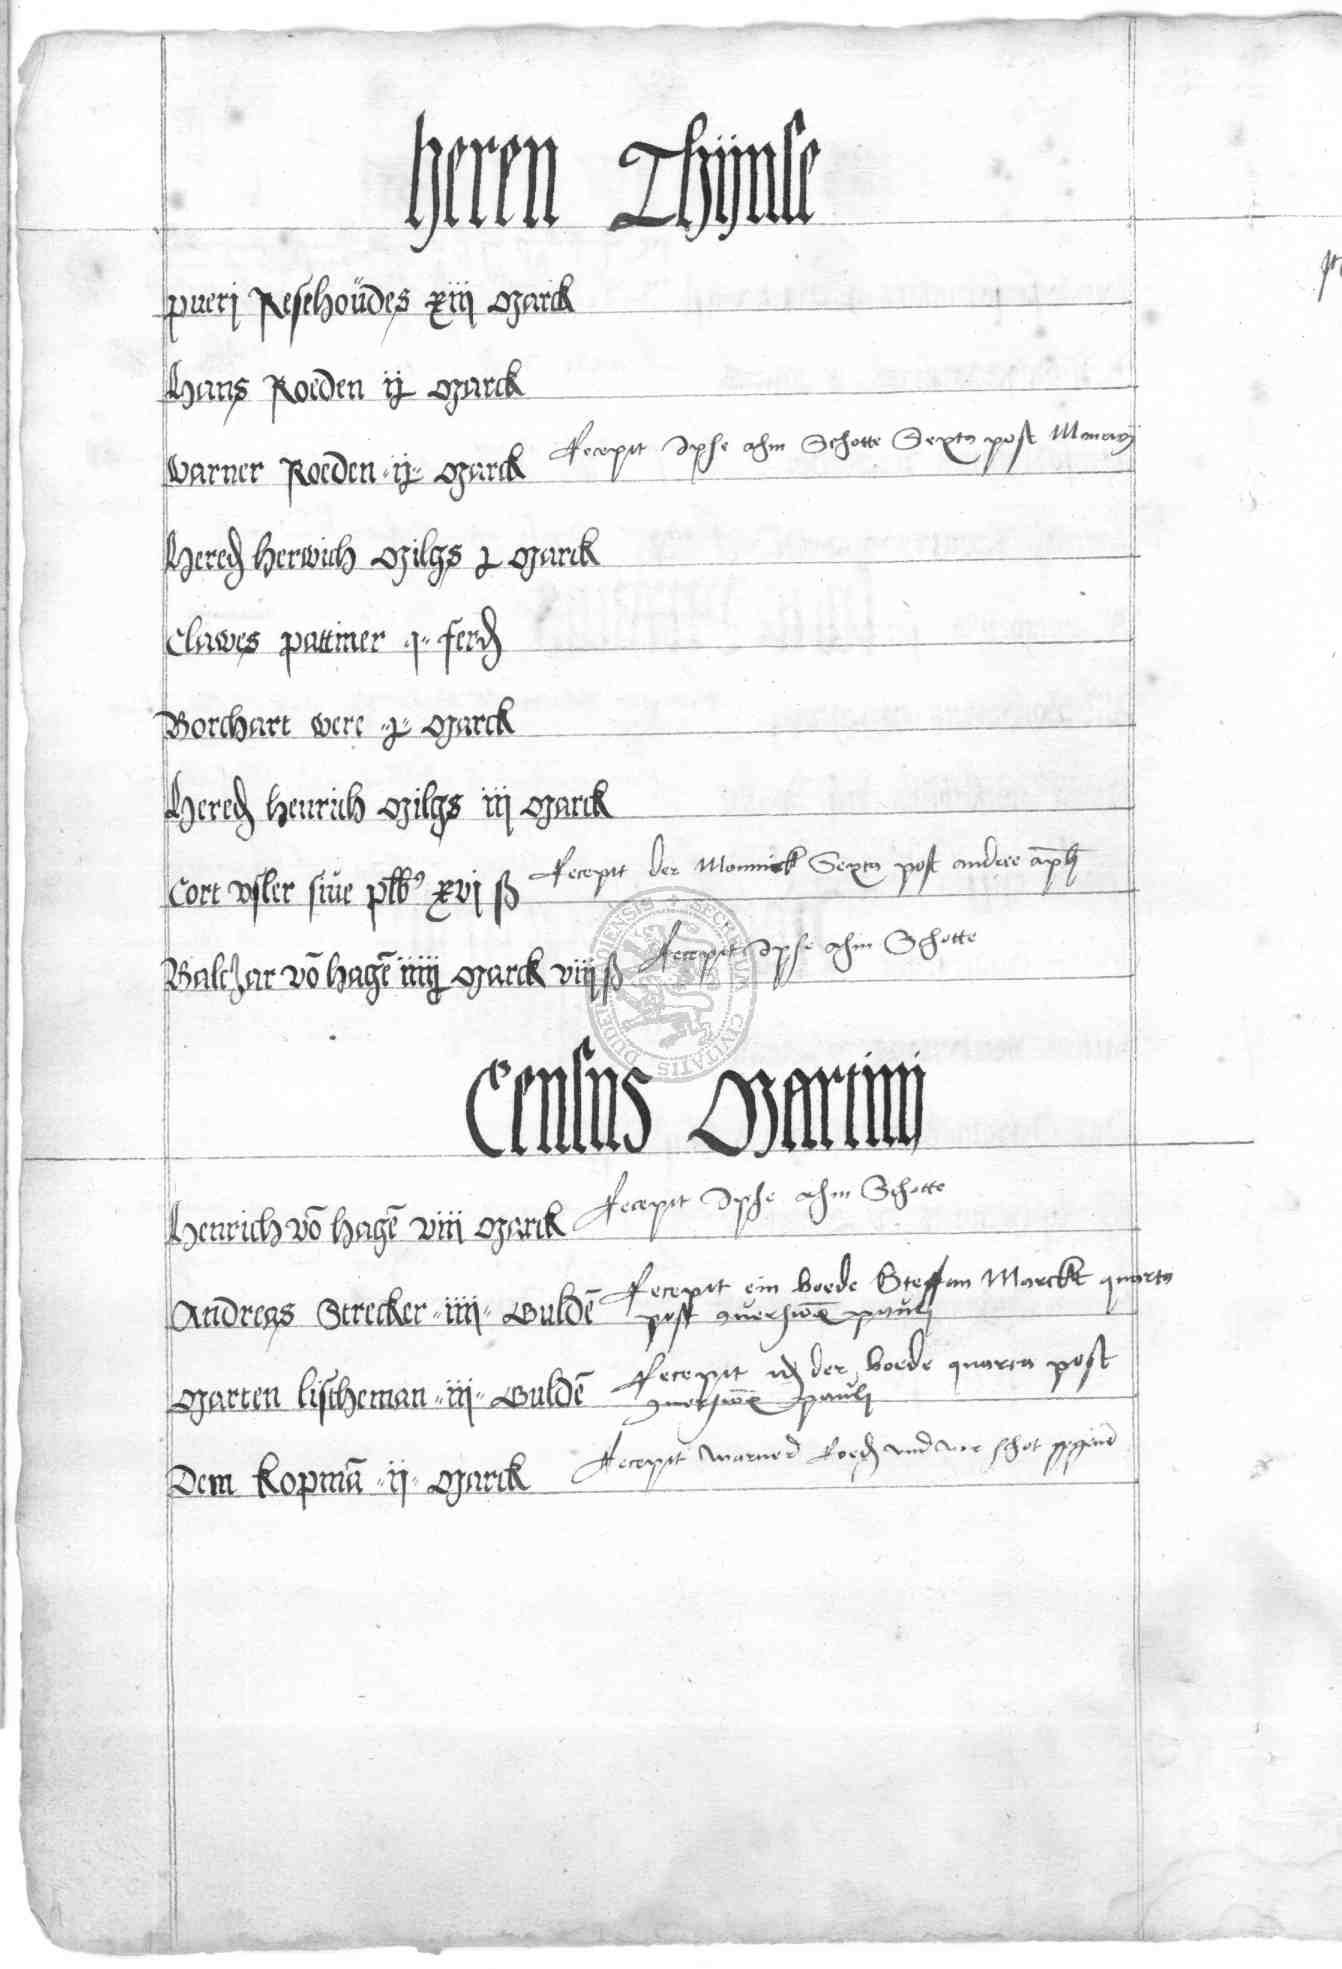 Heren Thÿnse
puerj Resehoüdes xiij Marck
Hans Roeden ij Marck
Warner Roeden ij Marck Recepit Ipse ahm Schotte Sexta post
Hered Herwich Gilgs Marck
Clawes pattiner j ferd
Borchart were Marck
Hered Henrich Gilgs iij Marck
Cort vsler siue plbs xvj ß Recepit der Monnick Sexta post andree apl
Baltzar vō hagē iiij Marck viij ß Recepit Ipse ahm Schotte
SECRETUM CIVITATIS DUDERSTADIENSIS
Census Martinj
Henrich vō hagē viij Marck Recepit Ipse ahm Schotte
Andreas Strecker iiij Guldē Recepit ein boede Steffan Marckt quarta
post pauli
Marten lischeman iij Guldē Recepit der boede quarta post
pauli
Dem kopmā ij Marck Recepit warner Roed vnd schot